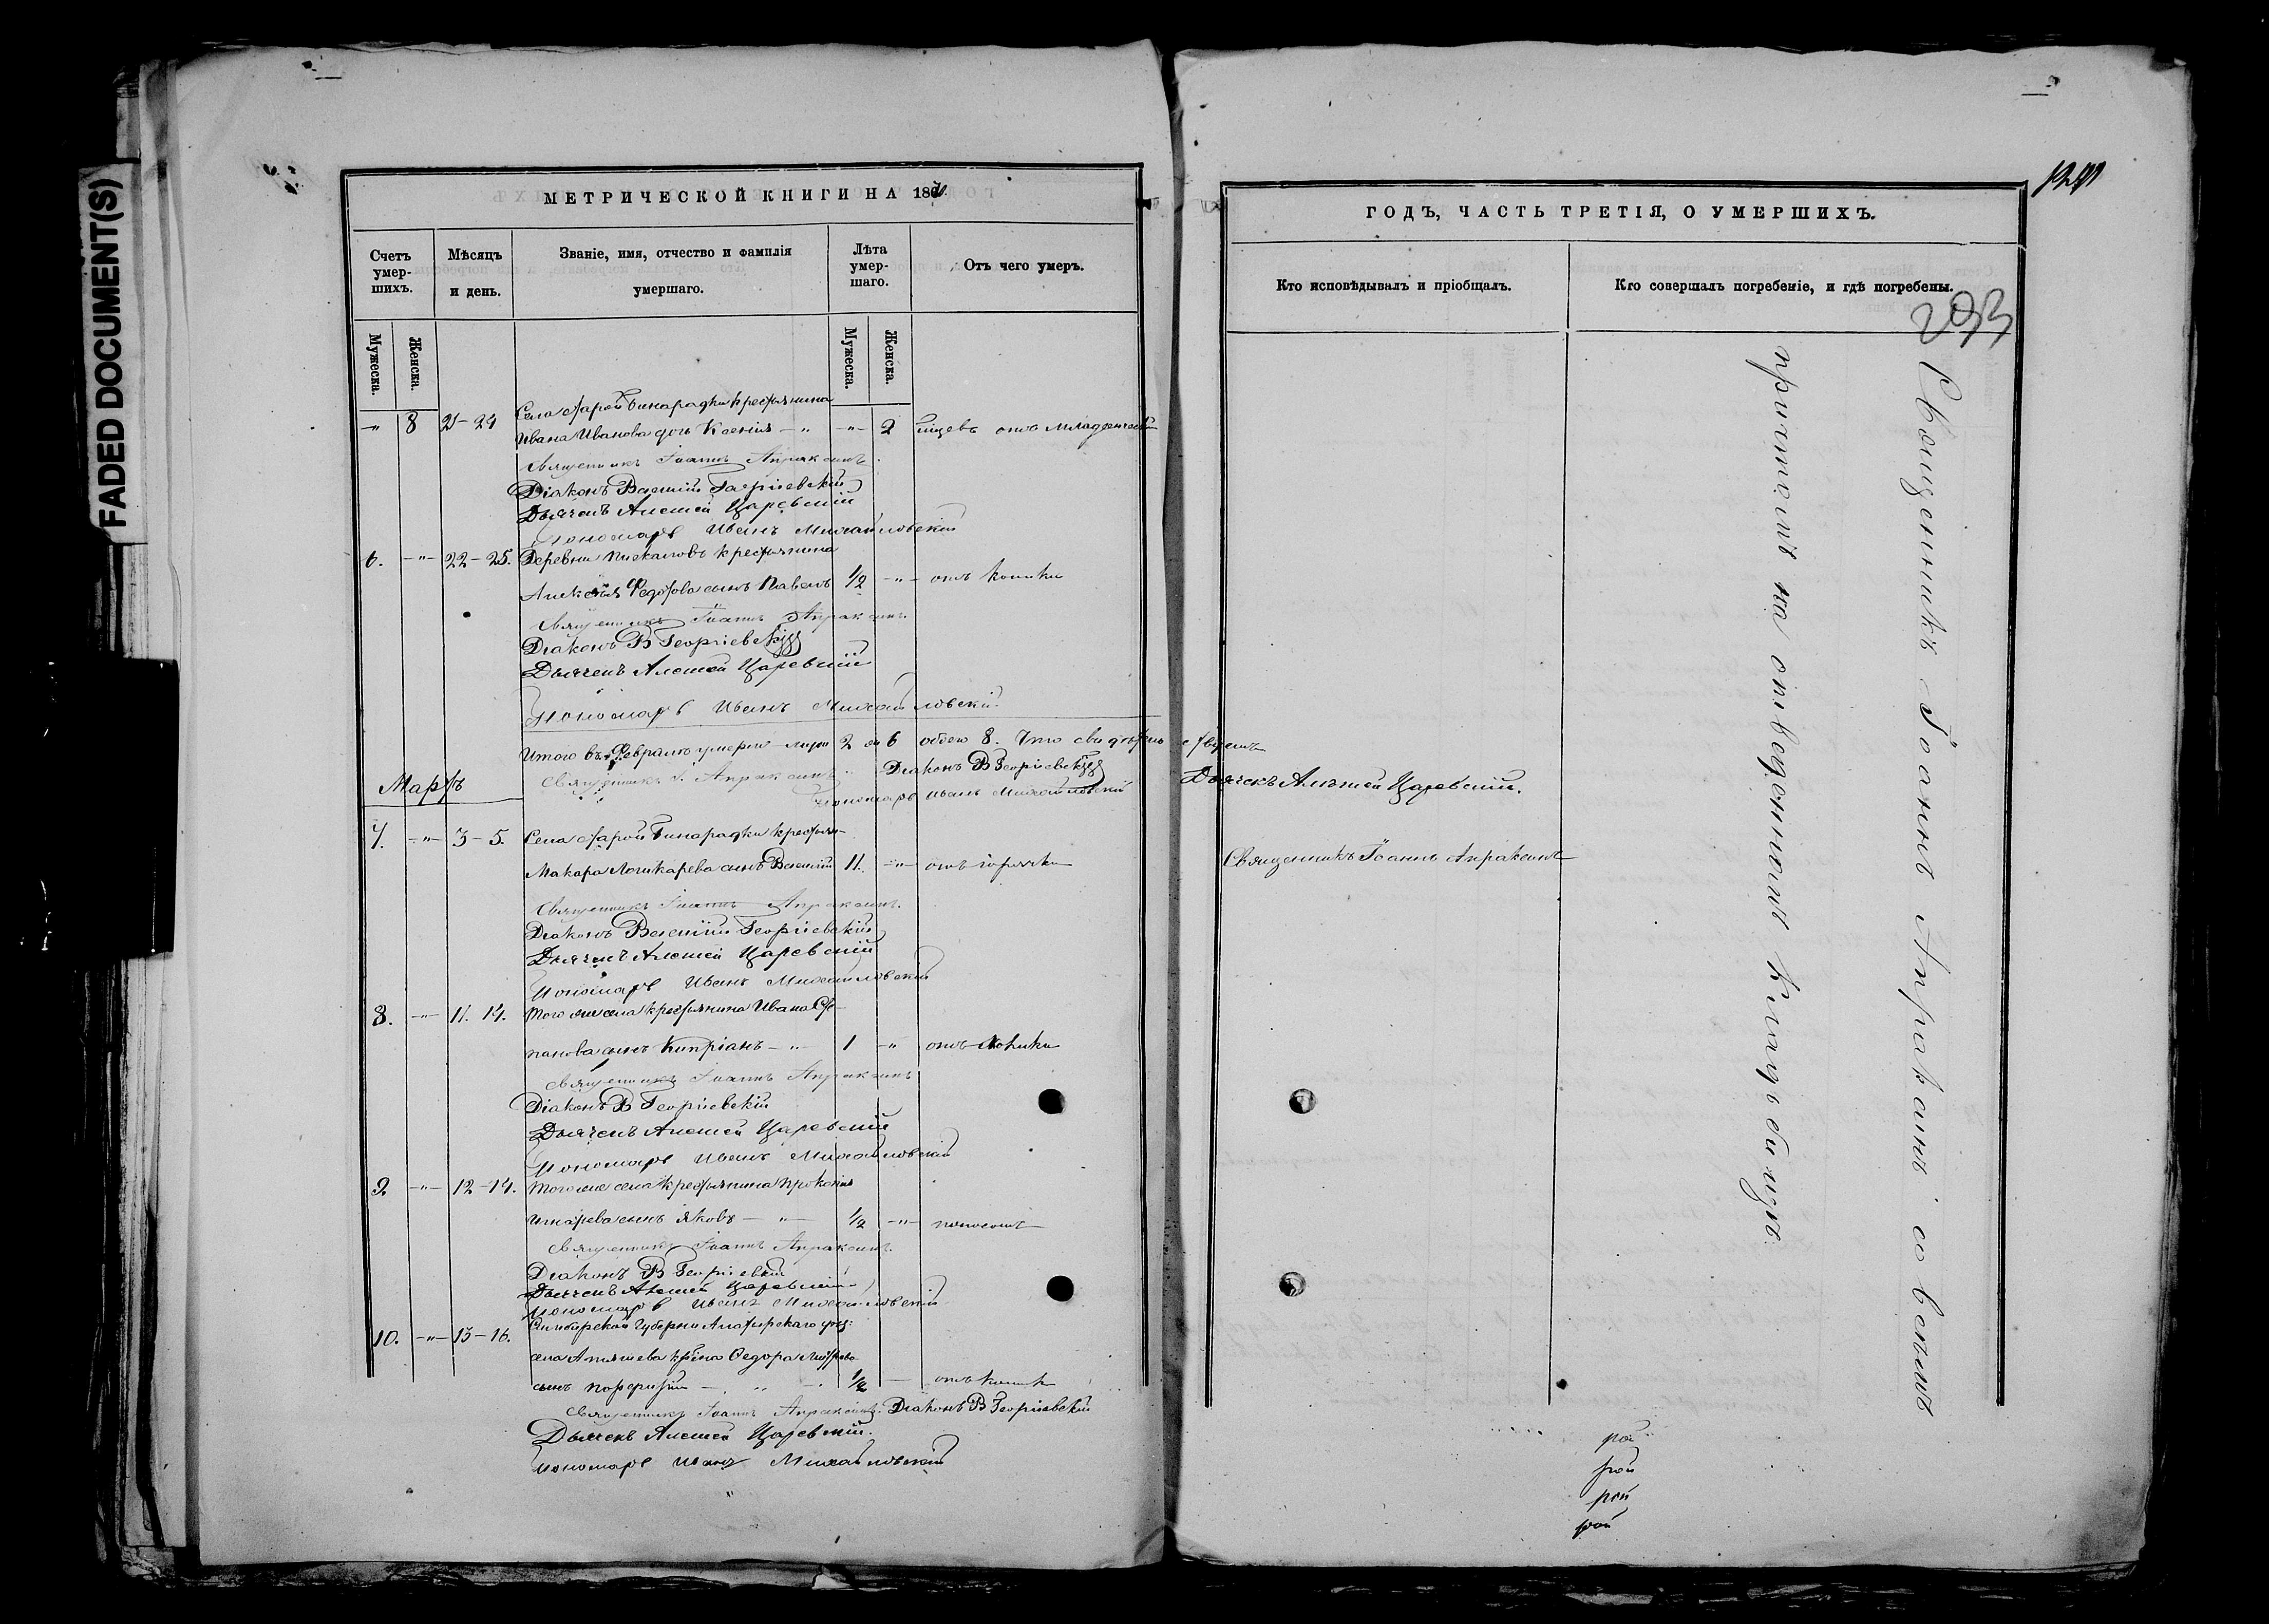 FADED DOCUMENT(S)
МЕТРИЧЕСКОЙ КНИГИ НА 186
Счетъ умер-шихъ.
Мѣсяцъ и день.
Званіе, имя, отчество и фамилія умершаго.
Лѣта умер-шаго.
Отъ чего умеръ.
Мужеска.
Женска.
Мужеска.
Женска.
-"- 8 21-24 Села Старой Бинарадки крестьянина
Ивана Иванова дочь Ксенія -"- -"- 2 отъ младенческой
Священникъ Іоаннъ Апраксинъ.
Діаконъ Василій Георгіевскій
Дьячекъ Алексей Царевскій
Пономарь Иванъ Михайловскій
6. -"- 22-25. Деревни крестьянина
Алексѣя Федотова сынъ Павелъ 1/2 -"- отъ колики
Священникъ Іоаннъ Апраксинъ.
Діаконъ В Георгіевскій
Дьячекъ Алексей Царевскій
Пономарь Иванъ Михайловскій.
Итого въ Февралѣ умерло муж 2 жен 6 обоего 8. Что свидѣтельствуемъ
Священникъ І. Апраксинъ. Діаконъ В Георгіевскій
Дьячекъ Алексей Царевскій.
Мартъ
Пономарь Иванъ Михайловскій
7. -"- 3-5. Села Старой Бинарадки крестьян-
Макара сынъ Василій 11. -"- отъ горячки
Священникъ Іоаннъ Апраксинъ.
Діаконъ Василій Георгіевскій
Дьячекъ Алексей Царевскій
Пономарь Иванъ Михайловскій
8. -"- 11. 14. Того же села крестьянина Ивана Сте-
панова сынъ Кипріанъ -"- 1 -"- отъ колики
Священникъ Іоаннъ Апраксинъ
Діаконъ В Георгіевскій
Дьячекъ Алексей Царевскій
Пономарь Иванъ Михайловскій
9. -"- 12-14. Того же села крестьянина Прокопія
сынъ Яковъ -"- 1/2 -"- поносомъ
Священникъ Іоаннъ Апраксинъ.
Діаконъ В Георгіевскій
Дьячекъ Алексей Царевскій
Пономарь Иванъ Михайловскій
10. -"- 13-16. Симбирской Губерніи Алатырскаго уѣзд:
села Федора
сынъ Порфирій -"- 1/2 - отъ колики
Священникъ Іоаннъ Апраксинъ. Діаконъ В Георгіевскій
Дьячекъ Алексей Царевскій.
Пономарь Иванъ Михайловскій
ГОДЪ, ЧАСТЬ ТРЕТІЯ, О УМЕРШИХЪ.
Кто исповѣдывалъ и пріобщалъ.
Кто совершалъ погребеніе, и гдѣ погребены.
293
Священникъ Іоаннъ Апраксинъ
Священникъ Іоаннъ Апраксинъ со всемъ
причтомъ на отведенномъ кладбищѣ
рой
рой
рой
рой